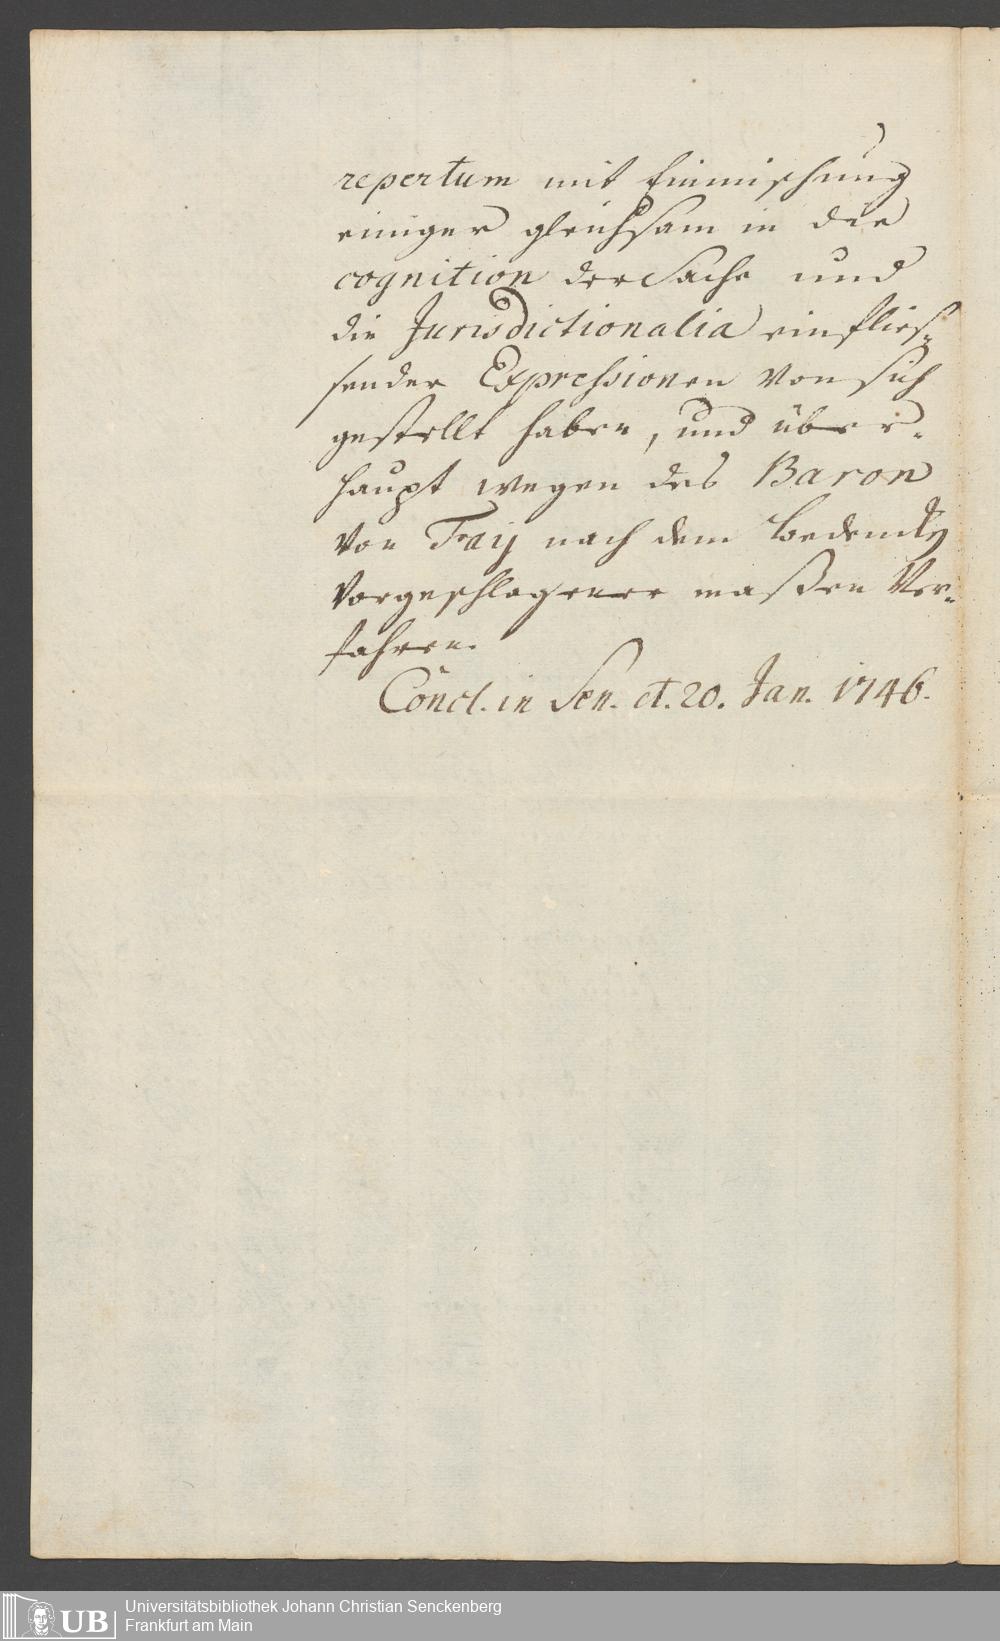 repertum mit Einmischung
einiger gleichsam in die
cognition der Sache und
die Jurisdictionalia einflies-
sender Expressionen von sich
gestellt haben, und über-
haupt wegen des Baron
von Fay nach dem
vorgeschlagener maßen Ver-
fahren.
Concl. in Sen. d. 20. Jan. 1746.
UB
Universitätsbibliothek Johann Christian Senckenberg
Frankfurt am Main